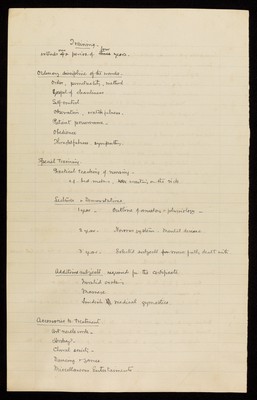 Training.
extends over a period of four years.
Ordinary discipline of the wards.
Order, punctuality, method
Gospel of cleanliness
Self control
Observation, watchfulness.
Patient perseverance.
Obedience
Thoughtfulness, sympathy.
Special Training.
Practical teaching of nursing.
e.g. bed making, on the sick
Lectures & Demonstrations.
1 year. Outlines of anatomy & physiology.
2 year. Nervous system. Mental disease.
3 year. Selected subjects more fully dealt with
Additional subjects required for the certificate.
Invalid cookery
Massage
Swedish medical gymnastics.
Accessories to Treatment
Art needlework.
Choral society.
Dancing &
Miscellaneous Entertainments